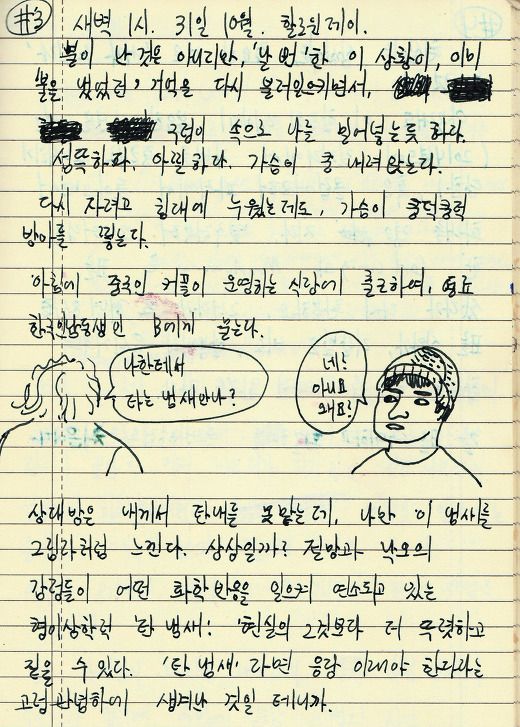 #3 새벽 1시. 31일 10월. 할로윈데이.
불이 난 것은 아니라만, '난 번'한 이 상황이, 이미
'불을 냈었던' 기억을 다시 불러일으키면서,
구렁이 속으로 나를 밀어넣는 듯 하다.
섬뜩하다. 아린하다. 가슴이 쿵 내려 앉는다.
다시 자려고 침대에 누웠는데도, 가슴이 쿵덕쿵덕
방아를 찧는다.
아침에 중국인 커플이 운영하는 식당에 출근하여, 동료
한국인남동생인 B에게 묻는다.
나한테서
타는 냄새안나?
네?
아니요
왜요?
상대방은 내게서 탄내를 못맡는데, 나만 이 냄새를
그림자처럼 느낀다. 상상일까? 절망과 낙오의
감정들이 어떤 화학반응을 일으켜 연소되고 있는
형이상학적 '탄 냄새'! '현실의 그것'보다 더 뚜렷하고
짙을 수 있다. '탄 냄새'라면 응당 이래야 한다라는
고정관념하에 생겨난 것일 테니까.